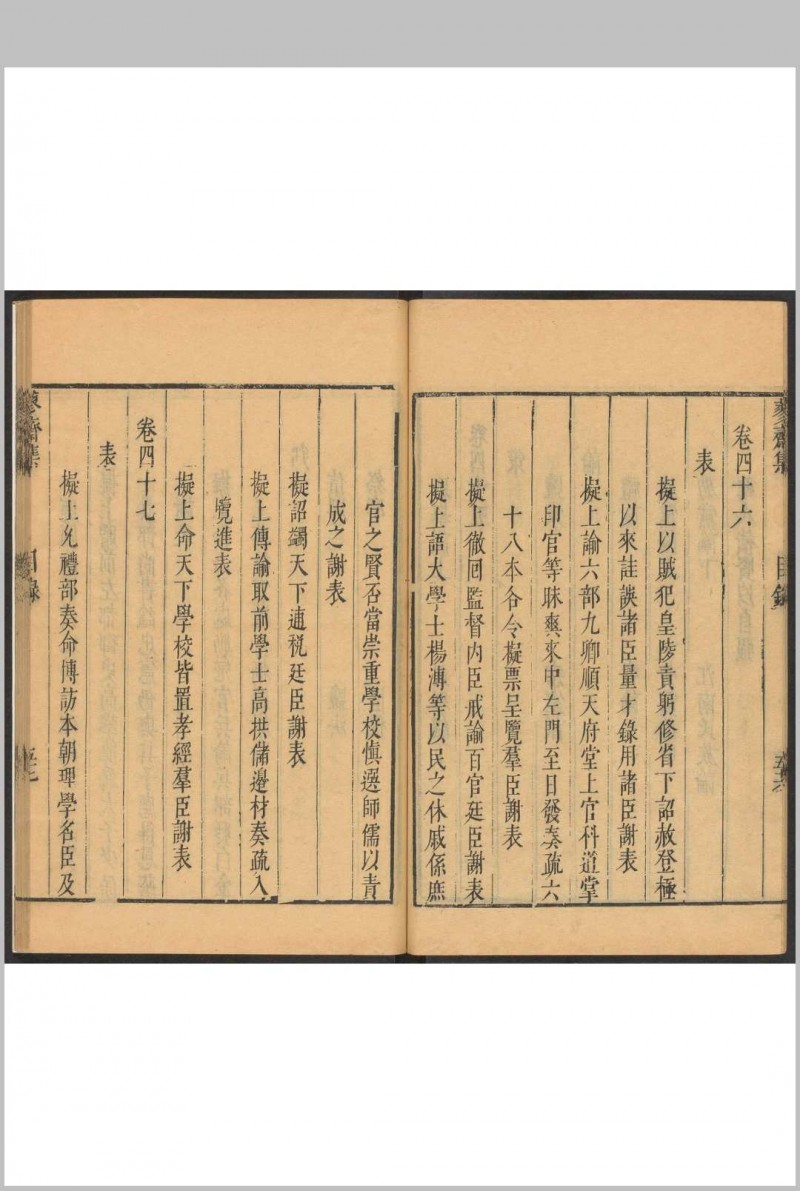 集
卷四十六
表
擬上以賊犯皇陵責躬修省下詔赦登極
以來詿誤諸臣量才錄用諸臣謝表
擬上諭六部九卿順天府堂上官科道掌
印官等昧爽來中左門至日發奏疏六
十八本各令擬票呈覽羣臣謝表
擬上徹回監督內臣戒諭百官廷臣謝表
擬上語大學士楊溥等以民之休戚係庶
官之賢否當崇重學校愼選師儒以責
成之謝表
擬詔蠲天下逋稅廷臣謝表
擬上傳諭取前學士高拱儲邊材奏疏入
覽進表
擬上命天下學校皆置孝經羣臣謝表
卷四十七
表
擬上允禮部奏命博訪本朝理學名臣及
齋集
目錄